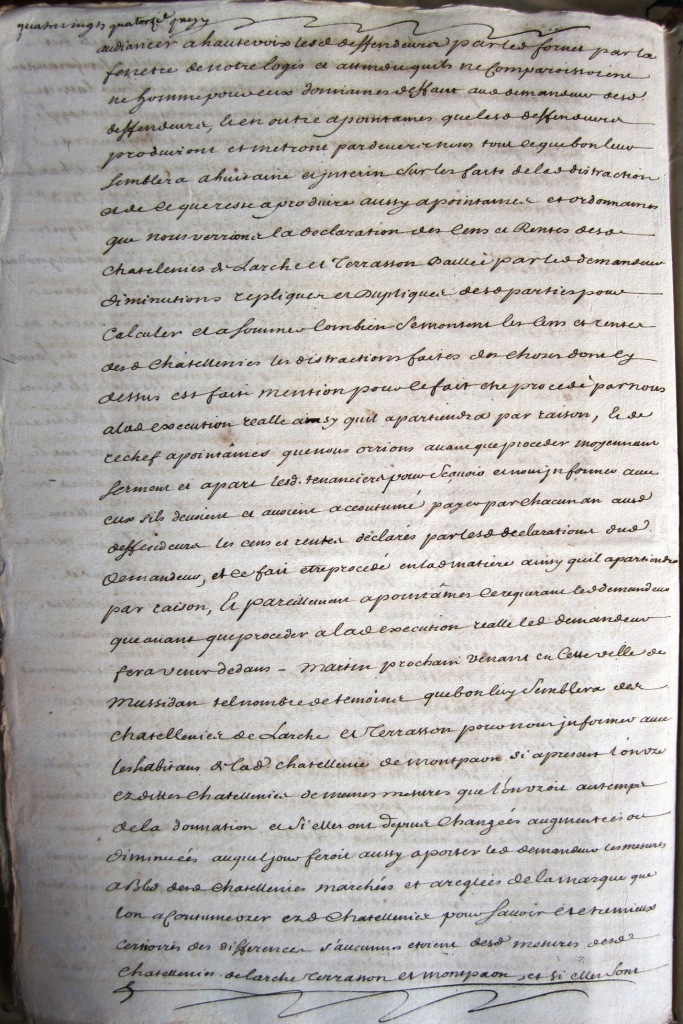 quatre vingts quatorze
audiancer a haute voix lesd deffendeurs par led par la
fenetre de notre logis et attendu quils ne comparoissoient
ne homme pour eux donnames deffaut aud demandeur desd
deffendeurs, et en outre apointames que lesd deffendeurs
produiront et metront pardevers nous tout ce que bon leur
semblera a huitaine et interin sur les faits de lad distraction
et de ce que reste a produire aussy apointames et ordonnames
que nous verrions la declaration des cens et rentes desd
chatellenies de Larche et Terrasson Baillée par led demandeur
diminutions repliques et dupliques desd parties pour
calculer et a sommer combien se montent les cens et rentes
desd chatellenies les distractions faites des choses dont cy
dessus est faite mention pour ce fait etre procedé par nous
a lad execution realle ainsy quil apartiendra par raison, et de
rechef apointâmes que nous orrions avant que proceder moyennant
serment et apart lesd. tenanciers pour scavoir et nous informer avec
eux sils devoient et avoient accoutumé payer par chacun an ausd
deffendeurs les cens et rentes déclarés par lesd declarations dud
demandeur, et ce fait etre procédé en lad matiere ainsy quil apartiendra
par raison, et pareillement apointâmes ce requerant led demandeur
que avant que proceder a lad execution realle led demandeur
fera venir dedans - Martin prochain venant en cette ville de
Mussidan tel nombre de temoins que bon luy semblera des
chatellenies de Larche et Terrasson pour nous informer avec
les habitans de lad. chatellenie de montpaon si apresent l'on uze
ezdittes chatellenies de memes mesures que l'on uzoit au temps
de la donnation et si elles ont depuis changées augmentées ou
diminuées auquel jour feroit aussy aporter led demandeur les mesures
a Bled desd chatellenies marchées et areglées de la marque que
l'on a coutume uzer ezd chatellenies pour savoir et etre mieux
certiorés des differences s'aucunes etoient desd mesures desd
chatellenies de larche terrasson et montpaon, et si elles sont